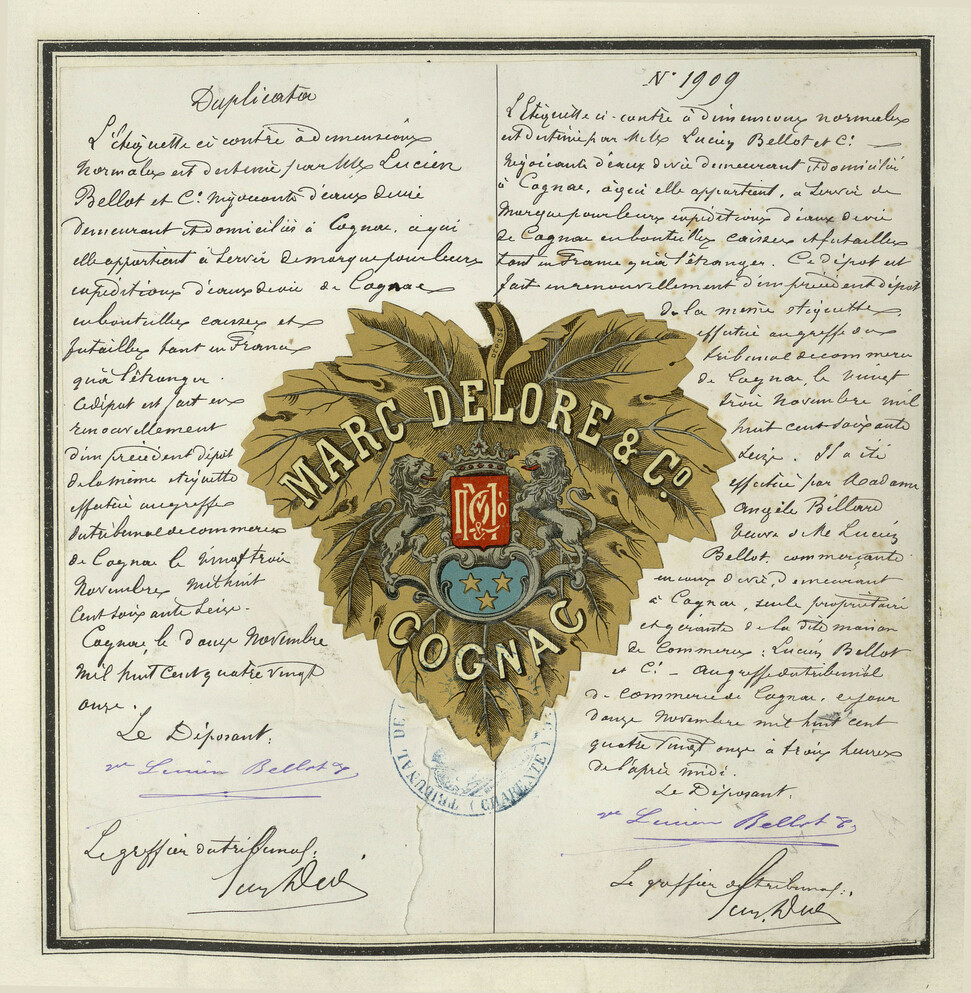 Duplicata
L'étiquette ci contre à dimensions
normales est destinée par MM Lucien
Bellot et Cie négociants d'eaux de vie
demeurant et domiciliés à Cognac, à qui
elle appartient à servir de marque pour leurs
expéditions d'eaux de vie de Cognac
en bouteilles caisses et
futailles tant en France
qu'à l'étranger.
Ce dépôt est fait en
renouvellement
d'un précédent dépôt
de la même étiquette
effectué au greffe
du tribunal de commerce
de Cognac le vingt trois
Novembre mil huit
cent soixante seize.
Cognac, le douze Novembre
mil huit cent quatre vingt
onze.
Le Déposant:
ve Lucien Bellot &
Le greffier du tribunal:
N° 1909
L'Etiquette ci-contre à dimensions normales
est destinée par MM Lucien Bellot et Cie
négociants d'eaux de vie demeurant et domiciliés
à Cognac, à qui elle appartient, à servir de
marque pour leurs expéditions d'eaux de vie
de Cognac en bouteilles caisses et futailles
tant en France qu'à l'étranger. Ce dépôt est
fait en renouvellement d'un précédent dépôt
de la même étiquette
effectué au greffe du
tribunal de commerce
de Cognac, le vingt
trois Novembre mil
huit cent soixante
seize. Il a été
effectué par Madame
Angèle Billard
veuve de Mr Lucien
Bellot, commerçante
en eaux de vie, demeurant
à Cognac, seule propriétaire
et gérante de la dite maison
de Commerce: Lucien Bellot
et Cie - au greffe du tribunal
de commerce de Cognac, ce jour
douze Novembre mil huit cent
quatre vingt onze à trois heures
de l'après midi.
Le Déposant.
ve Lucien Bellot &
Le greffier du tribunal:
DÉPOSÉ
MARC DELORE & Co
COGNAC
TRIBUNAL DE (CHARENTE)